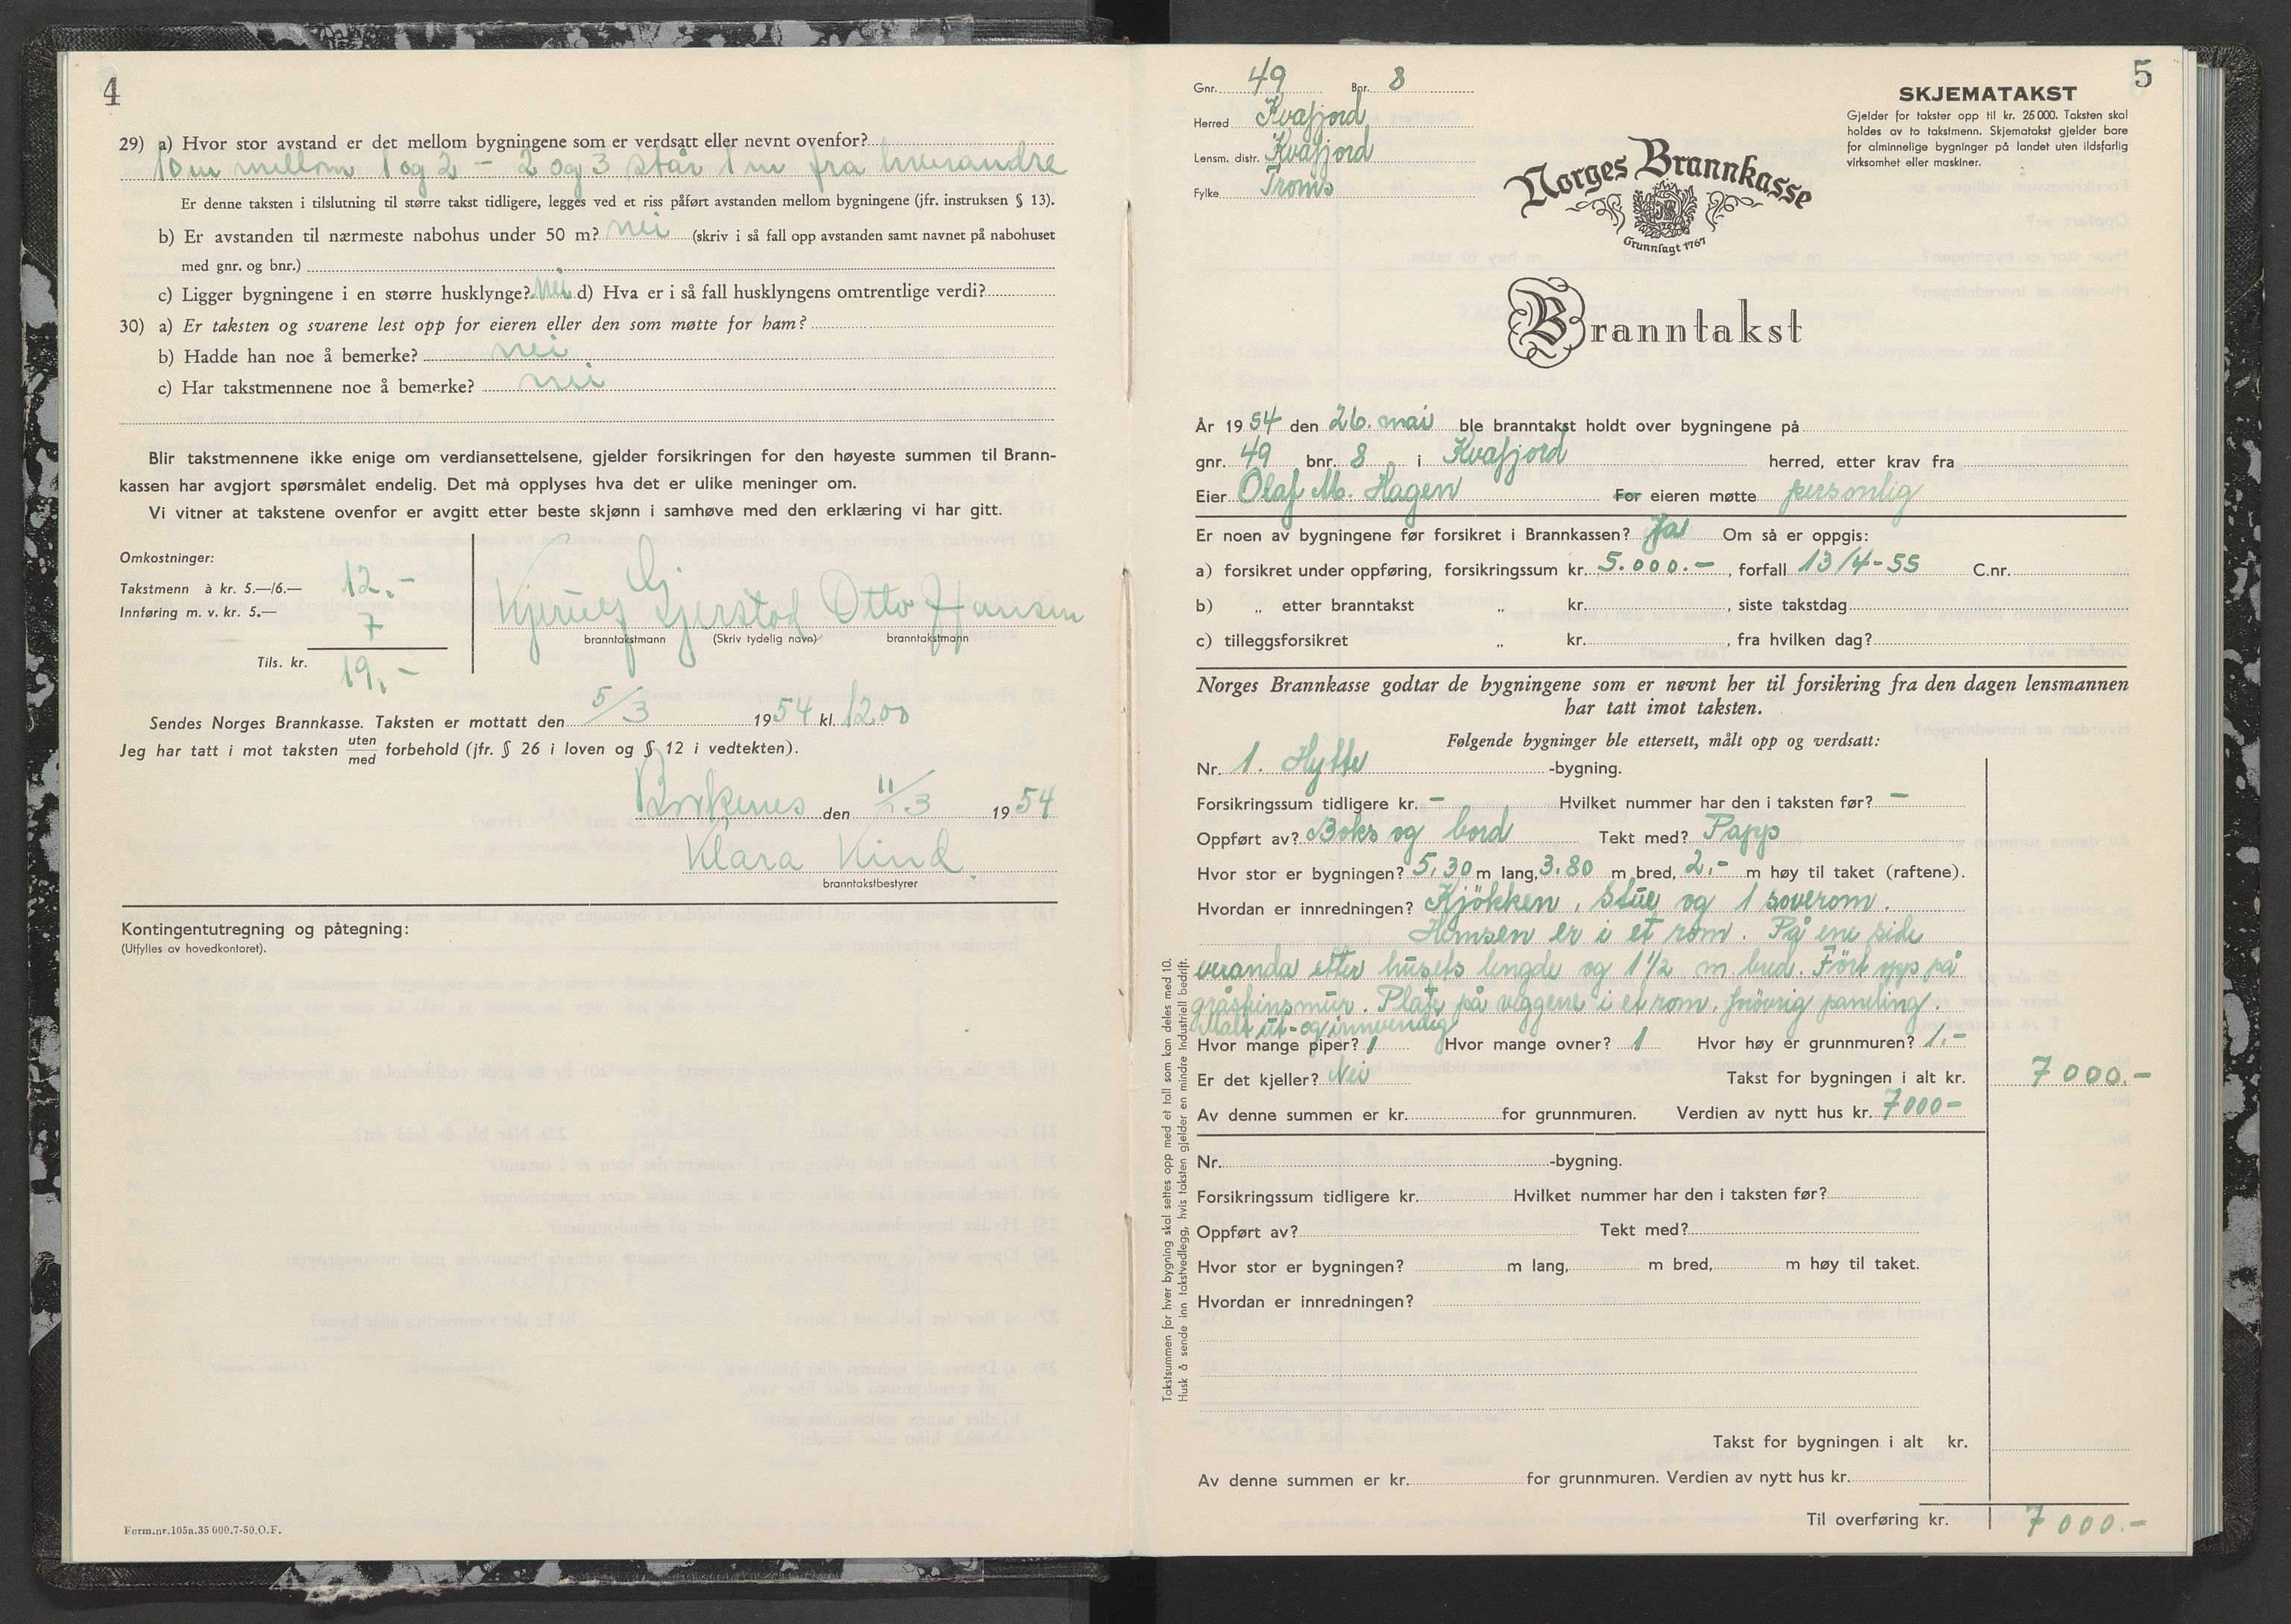 4
29) a) Hvor stor avstand er det mellom bygningene som er verdsatt eller nevnt ovenfor?
10 m mellom 1 og 2 - 2 og 3 står 1 m fra hverandre
Er denne taksten i tilslutning til større takst tidligere, legges ved et riss påført avstanden mellom bygningene (jfr. instruksen § 13).
b) Er avstanden til nærmeste nabohus under 50 m? nei (skriv i så fall opp avstanden samt navnet på nabohuset
med gnr. og bnr.)
c) Ligger bygningene i en større husklynge? nei d) Hva er i så fall husklyngens omtrentlige verdi?
30) a) Er taksten og svarene lest opp for eieren eller den som møtte for ham?
b) Hadde han noe å bemerke? nei
c) Har takstmennene noe å bemerke? nei
Blir takstmennene ikke enige om verdiansettelsene, gjelder forsikringen for den høyeste summen til Brann-
kassen har avgjort spørsmålet endelig. Det må opplyses hva det er ulike meninger om.
Vi vitner at takstene ovenfor er avgitt etter beste skjønn i samhøve med den erklæring vi har gitt.
Omkostninger:
Takstmenn à kr. 5.—/6.— 12.-
Innføring m. v. kr. 5.— 7
Tils. kr. 19.-
Gjerstad Otto J Hansen
branntakstmann (Skriv tydelig navn) branntakstmann
Sendes Norges Brannkasse. Taksten er mottatt den 5/3 1954 kl. 1200
Jeg har tatt i mot taksten uten/med forbehold (jfr. § 26 i loven og § 12 i vedtekten).
Borkenes den 11/3 1954
Klara Kind
branntakstbestyrer
Kontingentutregning og påtegning:
(Utfylles av hovedkontoret).
Form.nr.105a.35 000.7-50.O.F.
5
Gnr. 49 Bnr. 8
Herred Kvæfjord
Lensm. distr. Kvæfjord
Fylke Troms
SKJEMATAKST
Gjelder for takster opp til kr. 25 000. Taksten skal
holdes av to takstmenn. Skjematakst gjelder bare
for alminnelige bygninger på landet uten ildsfarlig
virksomhet eller maskiner.
Norges Brannkasse
Grunnlagt 1767
Branntakst
År 1954 den 26. mai ble branntakst holdt over bygningene på
gnr. 49 bnr. 8 i Kvæfjord herred, etter krav fra
Eier Olaf M. Hagen For eieren møtte personlig
Er noen av bygningene før forsikret i Brannkassen? Ja Om så er oppgis:
a) forsikret under oppføring, forsikringssum kr. 5.000.-, forfall 13/4-55 C.nr.
b) „ etter branntakst „ kr. , siste takstdag
c) tilleggsforsikret „ kr. , fra hvilken dag?
Norges Brannkasse godtar de bygningene som er nevnt her til forsikring fra den dagen lensmannen
har tatt imot taksten.
Følgende bygninger ble ettersett, målt opp og verdsatt:
Nr. 1. Hytte -bygning.
Forsikringssum tidligere kr. - Hvilket nummer har den i taksten før? -
Oppført av? Boks og bord Tekt med? Papp
Hvor stor er bygningen? 5,30 m lang, 3.80 m bred, 2,- m høy til taket (raftene).
Hvordan er innredningen? Kjökken, stue og 1 soverom.
Himsen er i et rom. På ene side
veranda etter husets lengde og 1 1/2 m. bred. Fört opp på
gråsteinsmur. Plate på veggene i et rom. forövrig paneling.
Malt ut- og innvendig
Hvor mange piper? 1 Hvor mange ovner? 1 Hvor høy er grunnmuren? 1.-
Er det kjeller? Nei Takst for bygningen i alt kr. 7000.-
Av denne summen er kr. for grunnmuren. Verdien av nytt hus kr. 7000-
Nr. -bygning.
Forsikringssum tidligere kr. Hvilket nummer har den i taksten før?
Oppført av? Tekt med?
Hvor stor er bygningen? m lang, m bred, m høy til taket.
Hvordan er innredningen?
Takst for bygningen i alt kr.
Av denne summen er kr. for grunnmuren. Verdien av nytt hus kr.
Til overføring kr. 7000.-
Takstsummen for hver bygning skal settes opp med et tall som kan deles med 10.
Husk å sende inn takstvedlegg, hvis taksten gjelder en mindre industriell bedrift.